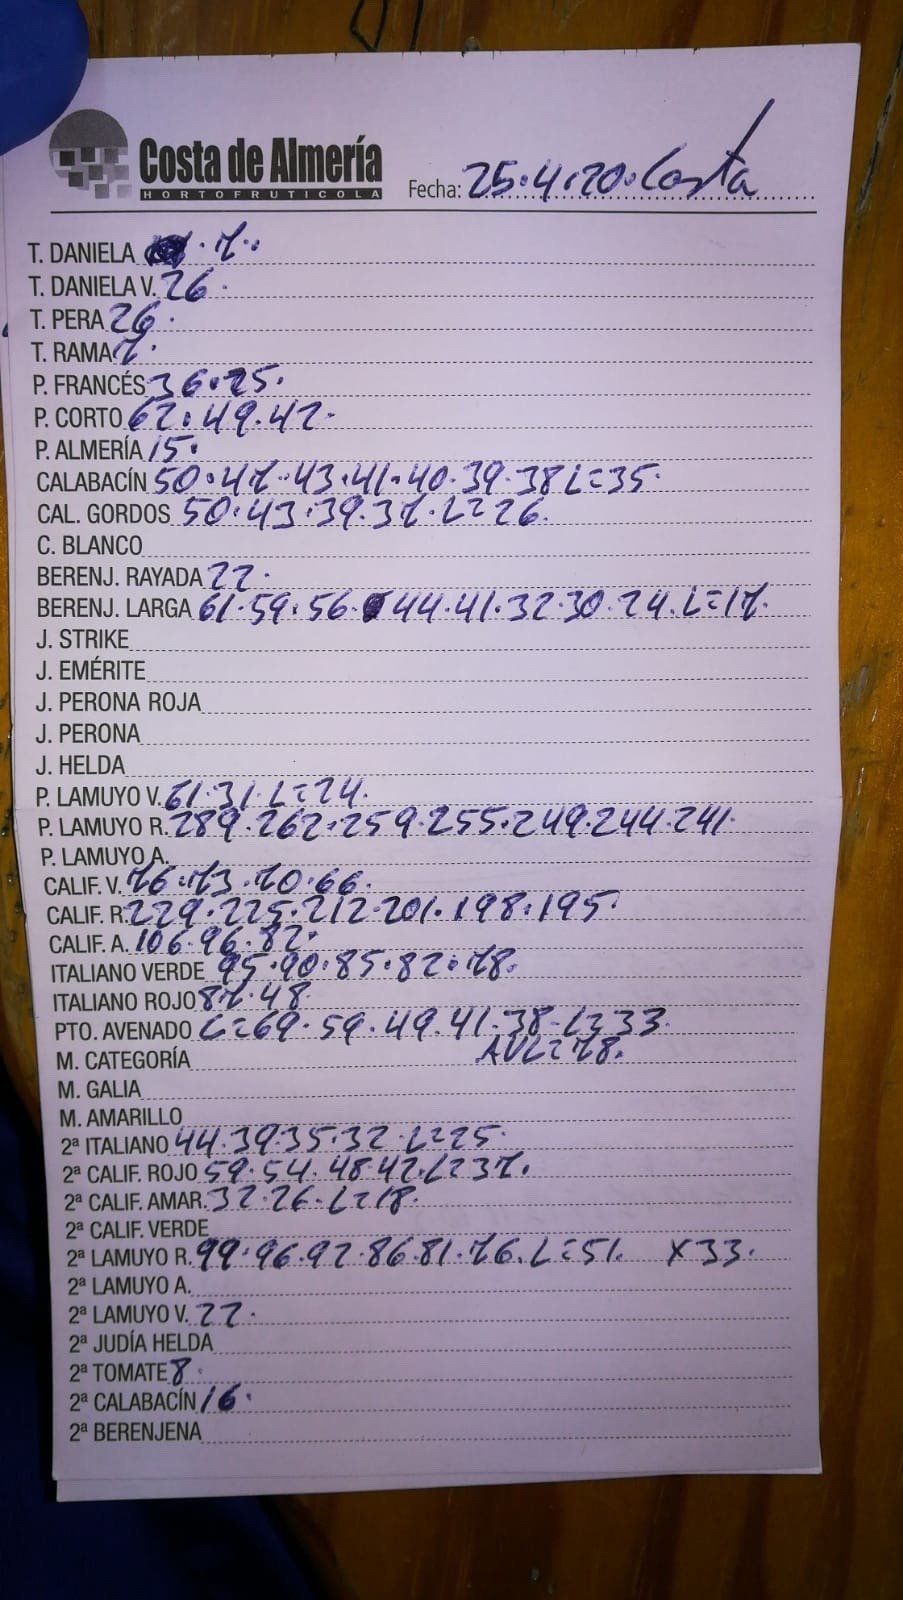 Costa de Almería
HORTOFRUTICOLA
Fecha: 25.4.20. Costa
T. DANIELA . 7.
T. DANIELA V. 26.
T. PERA 26.
T. RAMA 7.
P. FRANCÉS 36.25.
P. CORTO 62.49.42.
P. ALMERÍA 15.
CALABACÍN 50.47.43.41.40.39.38 L=35.
CAL. GORDOS 50.43.39.37.L=26.
C. BLANCO
BERENJ. RAYADA 22.
BERENJ. LARGA 61.59.56.44.41.32.30.24.L=17.
J. STRIKE
J. EMÉRITE
J. PERONA ROJA
J. PERONA
J. HELDA
P. LAMUYO V. 61.31.L=24.
P. LAMUYO R. 289.262.259.255.249.244.241.
P. LAMUYO A.
CALIF. V. 76.73.70.66.
CALIF. R. 229.225.212.201.198.195.
CALIF. A. 106.96.82.
ITALIANO VERDE 95.90.85.82.78.
ITALIANO ROJO 87.48.
PTO. AVENADO L=69.59.49.41.38.L=33.
M. CATEGORÍA AVL=78.
M. GALIA
M. AMARILLO
2ª ITALIANO 44.39.35.32.L=25.
2ª CALIF. ROJO 59.54.48.42.L=37.
2ª CALIF. AMAR. 32.26.L=18.
2ª CALIF. VERDE
2ª LAMUYO R. 99.96.92.86.81.76.L=51. X33.
2ª LAMUYO A.
2ª LAMUYO V. 22.
2ª JUDÍA HELDA
2ª TOMATE 8.
2ª CALABACÍN 16.
2ª BERENJENA